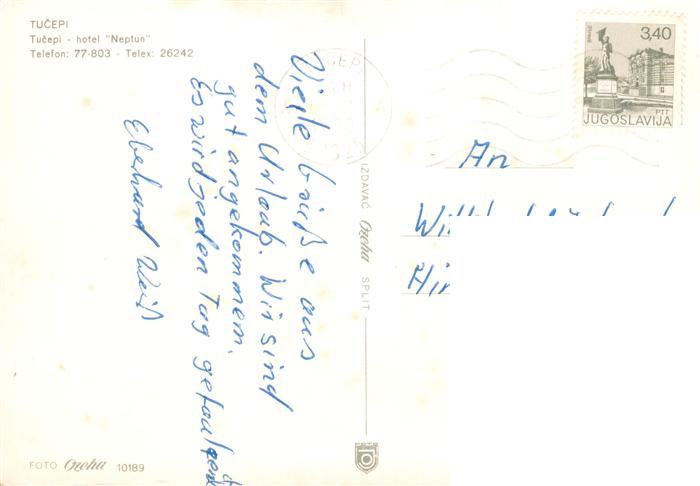 TUČEPI
Tučepi - hotel "Neptun"
Telefon: 77-803 - Telex: 26242
Viele Grüße aus
dem Urlaub. Wir sind
gut angekommen.
Es wird jeden Tag gefaulenzt
Eberhard Weiß
IZDAVAČ Ozeha SPLIT
FOTO Ozeha 10189
3,40
PTT
JUGOSLAVIJA
An